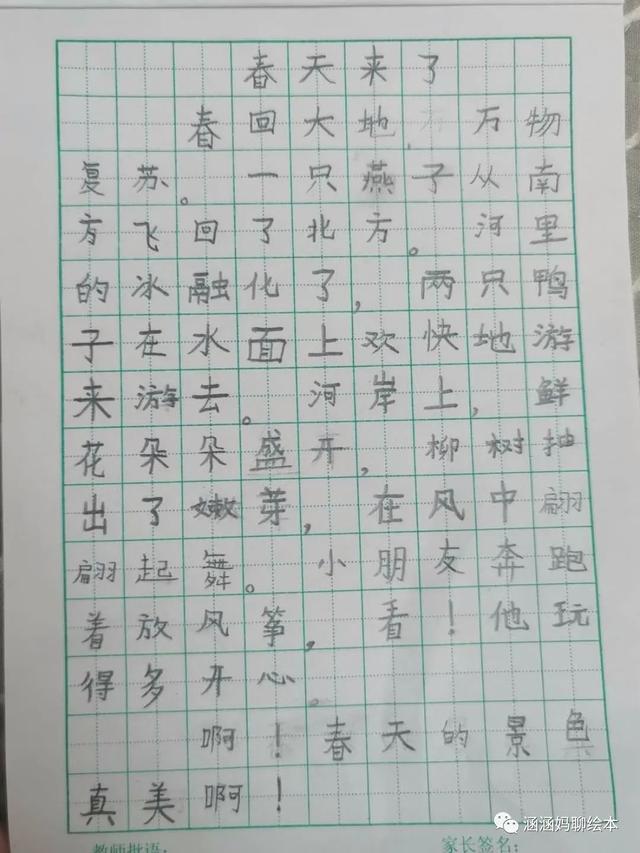 春天来了
春回大地，万物
复苏。一只燕子从南
方飞回了北方。河里
的冰融化了，两只鸭
子在水面上欢快地游
来游去。河岸上，鲜
花朵朵盛开，柳树抽
出了嫩芽，在风中翩
翩起舞。小朋友奔跑
着放风筝，看！他玩
得多开心。
啊！春天的景色
真美啊！
教师批语： 家长签名：
涵涵妈聊绘本